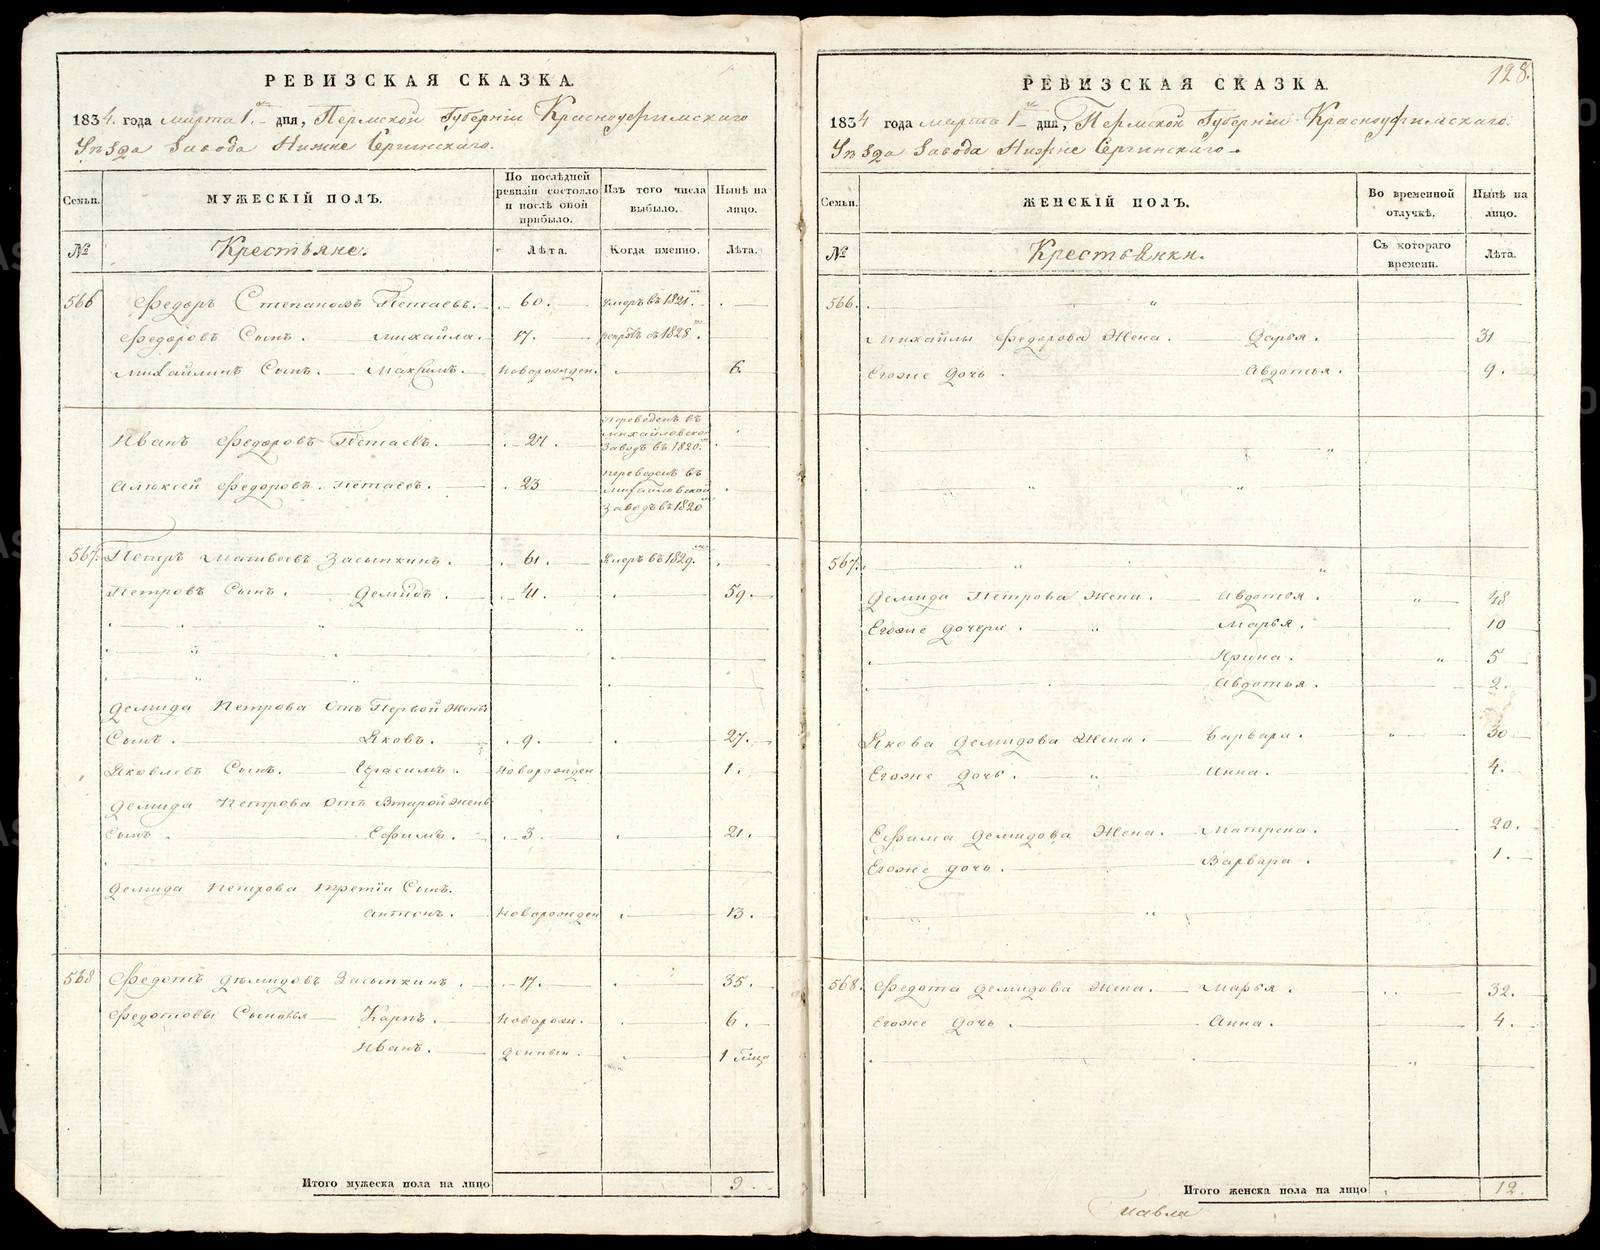 РЕВИЗСКАЯ СКАЗКА.
1834. года марта 1. дня, Пермской Губерніи Красноуфимскаго
Уѣзда Завода Нижне Сергинскаго.
Семьи.
МУЖЕСКІЙ ПОЛЪ.
По послѣдней ревизіи состояло и послѣ оной прибыло.
Изъ того числа выбыло.
Нынѣ на лицо.
№
Крестьяне.
Лѣта.
Когда именно.
Лѣта.
566 Федоръ Степановъ Петаевъ. 60. умеръ въ 1821. .
Федоровъ Сынъ. Михайла. 17. рекрутъ съ 1828.
Михайлинъ Сынъ. Максимъ. Новорожден. 6.
Иванъ Федоровъ Петаевъ. 27. переведенъ въ Михайловской Заводъ въ 1820.
Алексей Федоровъ. Петаевъ. 23 переведенъ въ Михайловской Заводъ въ 1820
567. Петръ Матвеевъ Засыпкинъ. 61. Умеръ въ 1829.
Петровъ Сынъ. Демидъ. 41. 59.
Демида Петрова Отъ Первой Жены
Сынъ. Яковъ. 9. 27.
Яковлевъ Сынъ. Герасимъ. Новорожден 1.
Демида Петрова Отъ Второй Жены
Сынъ. Ефимъ. 3. 21.
Демида Петрова третіи Сынъ.
Антонъ. Новорожден 13.
568 Федотъ Демидовъ Засыпкинъ. 17. 35.
Федотовы Сыновья Карпъ. Новорож. 6.
Иванъ. денныи. 1
Итого мужеска пола на лицо 9.
128.
РЕВИЗСКАЯ СКАЗКА.
1834 года марта 1 дня, Пермской Губерніи Красноуфимскаго.
Уѣзда Завода Нижне Сергинскаго.
Семьи.
ЖЕНСКІЙ ПОЛЪ.
Во временной отлучкѣ.
Нынѣ на лицо.
№
Крестьянки.
Съ котораго времени.
Лѣта.
566.
Михайлы Федорова Жена. Дарья. 31
Егоже Дочь. Авдотья. 9.
567.
Демида Петрова Жена. Авдотья. 48
Егоже дочери. Марья. 10
Ирина. 5
Авдотья. 2.
Якова Демидова Жена. Варвара. 30
Егоже Дочь. Анна. 4.
Ефима Демидова Жена. Матрена. 20.
Егоже дочь. Варвара. 1.
568. Федота Демидова Жена. Марья. 32.
Егоже Дочь. Анна. 4.
Итого женска пола на лицо 12.
Павла